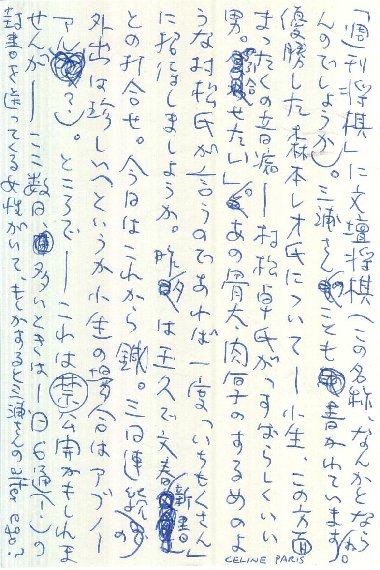 「週刊将棋」に文壇将棋(この名称、なんとかなら
んのでしょうか)。三浦さんのことも書かれています。
優勝した森本レオ氏について—小生、この方面
まったくの音痴—村松卓氏が「すばらしくいい
男。せたい」とあの骨太・肉厚のするめのよ
うな村松氏が言うのであれば一度、「いちもくさん」
に招待しましょうか。昨夕は王久で文春新書
との打合せ。今日はこれから鍼。三日連続の
外出は珍しい(というか小生の場合はアブノー
マル?)。ところで—これは禁公開かもしれま
せんが—ここ数日、多いときは一日6通(!)の
封書を送ってくる女性がいて、もしかすると三浦さんの
CELINE PARIS